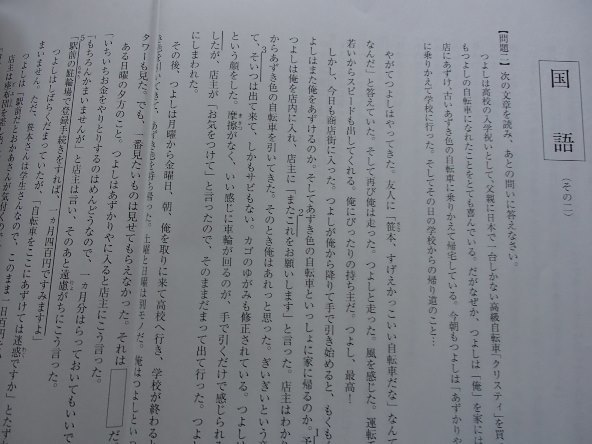 国語
(その二)
【問題二】次の文章を読み、あとの問いに答えなさい。
つよしは高校の入学祝いとして、父親に日本で一台しかない高級自転車「クリスティ」を買
もつよしの自転車になれたことをとても喜んでいる。だがなぜか、つよしは「俺」を家には
店にあずけ、古いあずき色の自転車に乗りかえて帰宅している。今朝もつよしは「あずかりや
に乗りかえて学校に行った。そしてその日の学校からの帰り道のこと…
やがてつよしはやってきた。友人に「笹本、すげえかっこいい自転車だな」なんて
なんだ」と答えていた。そして再び俺は走った。つよしと走った。風を感じた。運転
若いからスピードも出してくれる。俺にぴったりの持ち主だ。つよし、最高!
しかし、今日も商店街に入った。つよしが俺から降りて手で引き始めると、もくも
よしはまた俺をあずけるのか。そしてあずき色の自転車といっしょに家に帰るのか。予
つよしは俺を店内に入れ、店主に「またこれをお願いします」と言った。店主はわかる
からあずき色の自転車を引いてきた。そのとき俺はあれっと思った。ぎいぎいという
て、そいつは出て来て、しかもサビもない。カゴのゆがみも修正されている。つよし
という顔をした。摩擦がなく、いい感じに車輪が回るのが、手で引くだけで感じられ
したが、店主が「お気をつけて」と言ったので、そのままだまって出て行った。つよ
にしまわれた。
その後、つよしは月曜から金曜日、朝、俺を取りに来て高校へ行き、学校が終わる
き色を引いて、あずき色を持ち帰った。土曜と日曜は別モノだ。俺はつよしといっ
タワーも見た。でも、一番見たいものは見せてもらえなかった。それは　　　　だ
ある日曜の夕方のこと。つよしはあずかりやに入ると店主にこう言った。
「いちいちお金をやりとりするのはめんどうなので、一ヵ月分はらっておいてもいいで
「もちろんかまいませんが」と店主は言い、そのあと遠慮がちにこう言った。
「駅前の駐輪場で登録手続きをすれば、一ヵ月四百円ですみますよ」
つよしはしばらくだまっていたが、「自転車をここにあずけては迷惑ですか」とたず
まいません。ただ、笹本さんは学生さんなので、このまま一日百円
つよしは「駅前だとおかあさんが気付くので